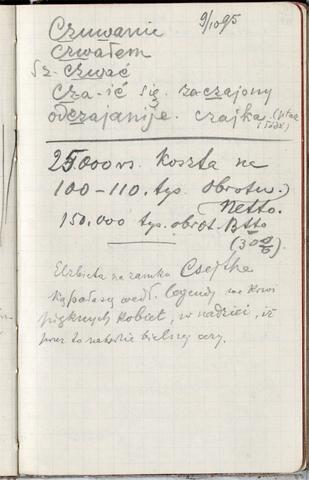 Czuwanie 9/10 95
Czwałem
Sz-czwać
Cza-ić się zaczajony
odczajanije. czajka (ptak
i łódź)
25000 rs. koszta na
100-110. tys. obrotu.)
Netto.
150,000 tys. obrot. Btto
(30%).
Elżbieta na zamku Csejthe
kąpała się wedł. legendy we krwi
pięknych kobiet, w nadziei, iż
przez to nabierze bielszej cery.